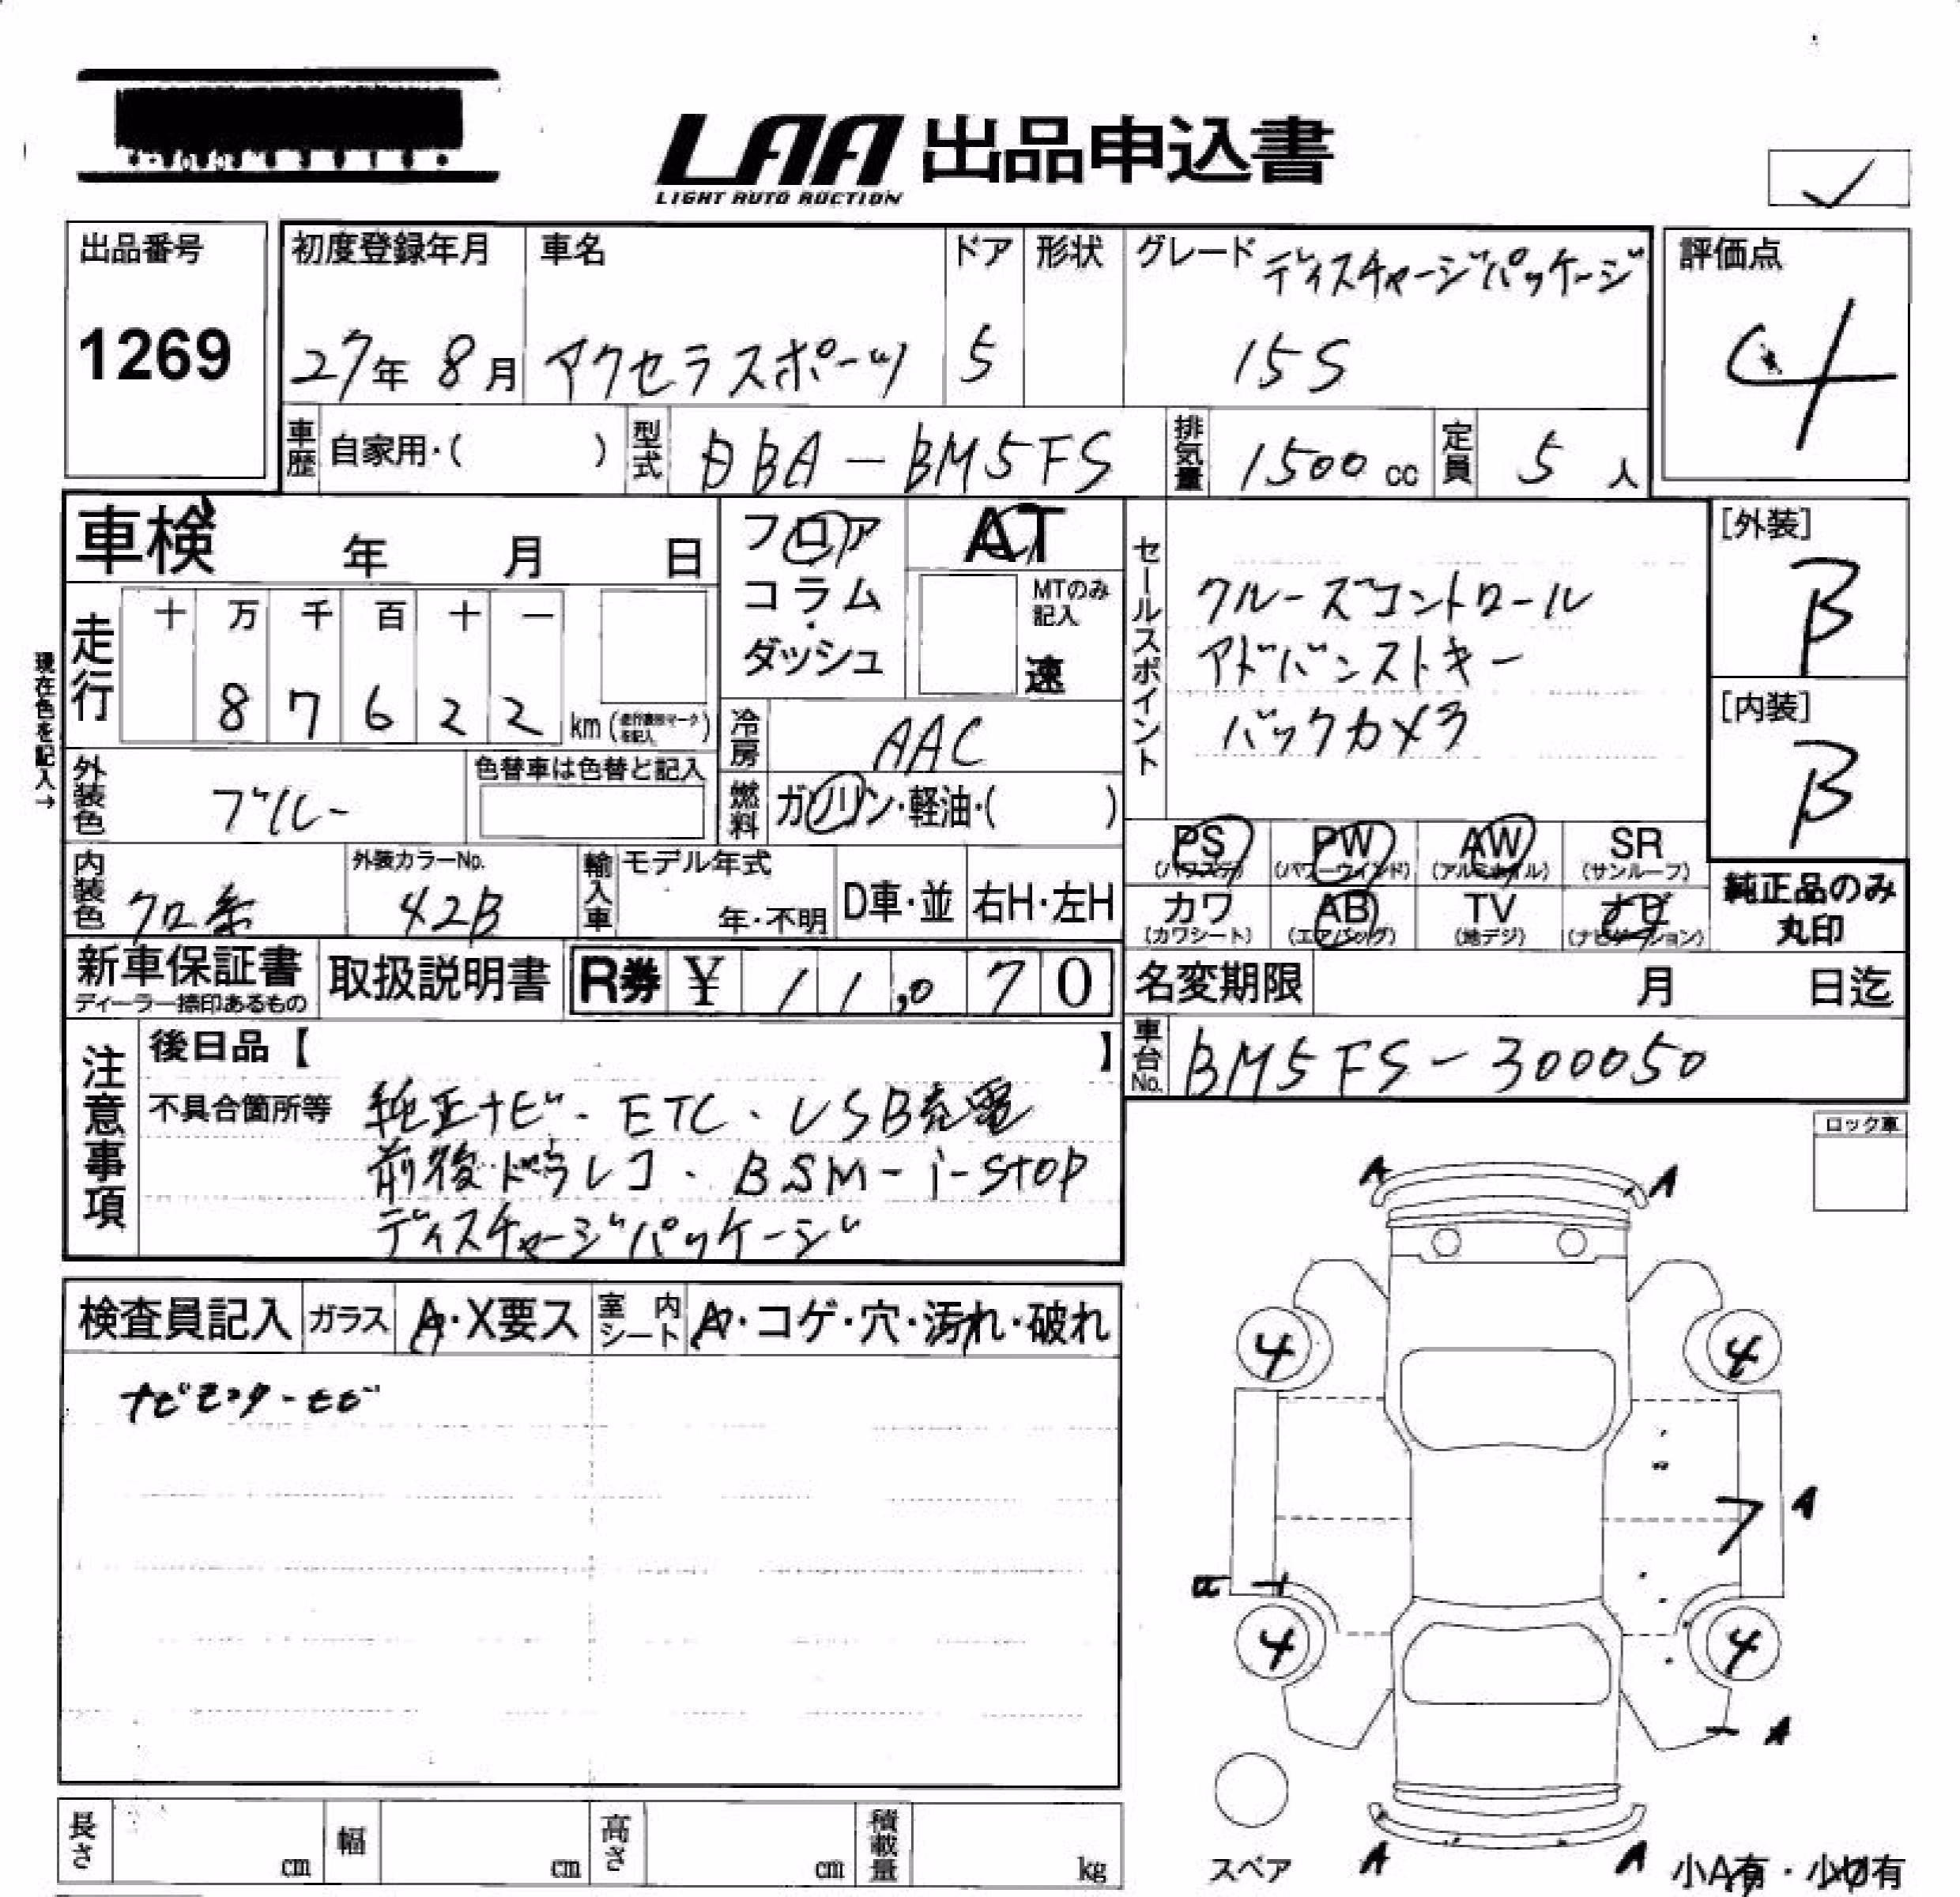 LAA 出品申込書
LIGHT AUTO AUCTION
✓
出品番号
1269
初度登録年月
27年 8月
車名
アクセラスポーツ
ドア
5
形状
グレード ディスチャージパッケージ
15S
評価点
4
車歴 自家用・( )
型式 DBA-BM5FS
排気量 1500 cc
定員 5 人
車検 年 月 日
フロア
コラム・
ダッシュ
AT
MTのみ記入
速
セールスポイント
クルーズコントロール
アドバンストキー
バックカメラ
[外装]
B
[内装]
B
現在色を記入→
走行
十 万 千 百 十 一
8 7 6 2 2 km
冷房 AAC
燃料 ガソリン・軽油・( )
外装色 ブルー
色替車は色替ど記入
内装色 クロ系
外装カラーNo.
42B
輸入車
モデル年式
年・不明
D車・並
右H・左H
PS (パワステ)
PW (パワーウインド)
AW (アルミホイル)
SR (サンルーフ)
カワ (カワシート)
AB (エアバッグ)
TV (地デジ)
ナビ (ナビゲーション)
純正品のみ
丸印
新車保証書
ディーラー捺印あるもの
取扱説明書
R券 ¥ 11,070
名変期限 月 日迄
車台No. BM5FS-300050
注意事項
後日品【 】
不具合箇所等 純正ナビ・ETC・USB充電
前後ドラレコ・BSM-i-stop
ディスチャージパッケージ
ロック車
検査員記入
ガラス A・X要ス
室内シート A・コゲ・穴・汚れ・破れ
ナビモニターセビ
A A
4 4
7 A
4 4
A
A A
スペア
小A有・小U有
長さ cm
幅 cm
高さ cm
積載量 kg